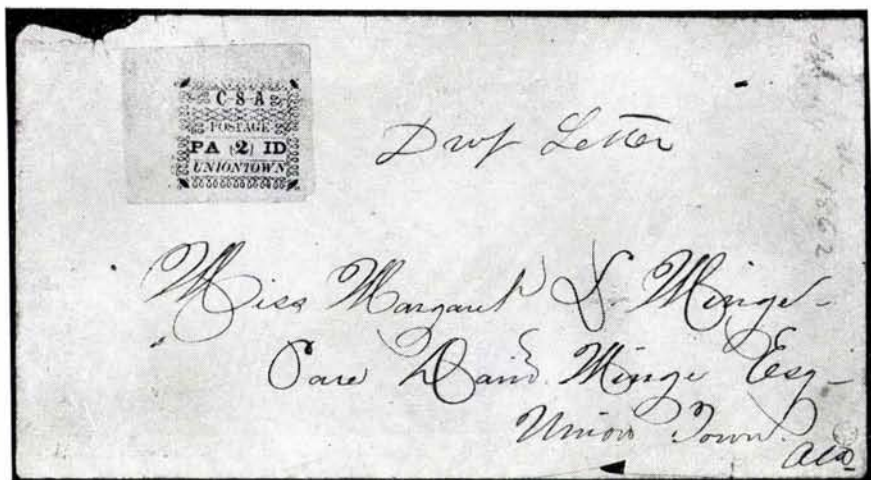 C·S·A
POSTAGE
PA (2) ID
UNIONTOWN
Drop Letter
1862
Miss Margaret Minge
Care Minge Esq
Union Town
Ala